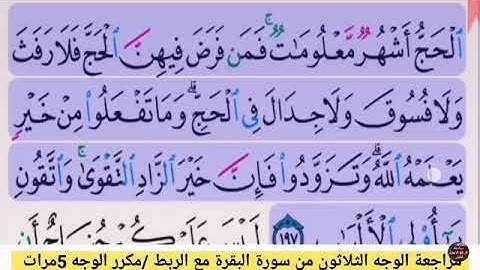 ٱلۡحَجُّ أَشۡهُرٞ مَّعۡلُومَٰتٞۚ فَمَن فَرَضَ فِيهِنَّ ٱلۡحَجَّ فَلَا رَفَثَ
وَلَا فُسُوقَ وَلَا جِدَالَ فِي ٱلۡحَجِّۗ وَمَا تَفۡعَلُواْ مِنۡ خَيۡرٖ
يَعۡلَمۡهُ ٱللَّهُۗ وَتَزَوَّدُواْ فَإِنَّ خَيۡرَ ٱلزَّادِ ٱلتَّقۡوَىٰۖ وَٱتَّقُونِ
يَٰٓأُوْلِي ٱلۡأَلۡبَٰبِ ١٩٧ لَيۡسَ عَلَيۡكُمۡ جُنَاحٌ أَن
مراجعة الوجه الثلاثون من سورة البقرة مع الربط /مكرر الوجه 5مرات